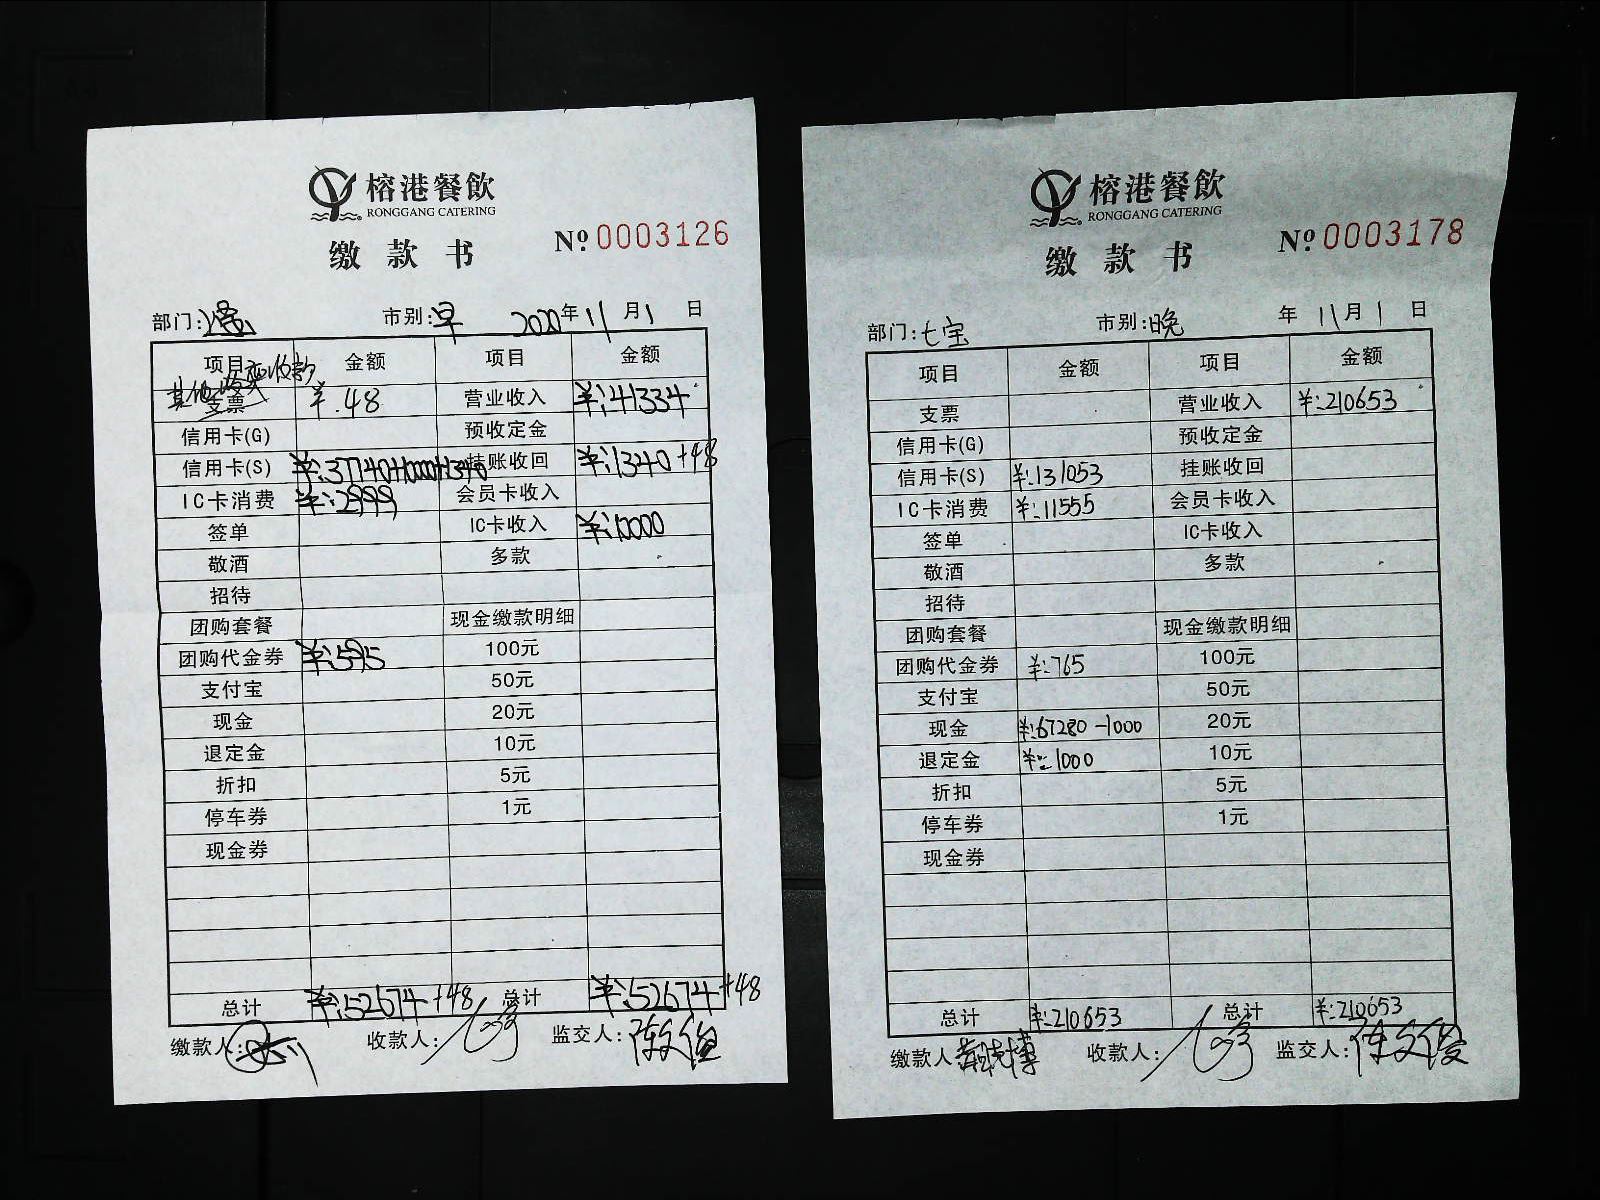 榕港餐飲
RONGGANG CATERING
缴款书
Nº 0003126
部门: 市别:早 2020年11月1日
项目 金额 项目 金额
支票 ¥.48 营业收入 ¥:41334
信用卡(G) 预收定金
信用卡(S) ¥:37740+10000+1340 挂账收回 ¥:1340+48
IC卡消费 ¥:2999 会员卡收入
签单 IC卡收入 ¥:10000
敬酒 多款
招待
团购套餐 现金缴款明细
团购代金券 ¥:595 100元
支付宝 50元
现金 20元
退定金 10元
折扣 5元
停车券 1元
现金券
总计 ¥:52674+48 总计 ¥:52674+48
缴款人: 收款人: 监交人:
榕港餐飲
RONGGANG CATERING
缴款书
Nº 0003178
部门:七宝 市别:晚 年11月1日
项目 金额 项目 金额
支票 营业收入 ¥:210653
信用卡(G) 预收定金
信用卡(S) ¥:131053 挂账收回
IC卡消费 ¥:11555 会员卡收入
签单 IC卡收入
敬酒 多款
招待
团购套餐 现金缴款明细
团购代金券 ¥:765 100元
支付宝 50元
现金 ¥:67280-1000 20元
退定金 ¥:1000 10元
折扣 5元
停车券 1元
现金券
总计 ¥:210653 总计 ¥:210653
缴款人 收款人: 监交人: